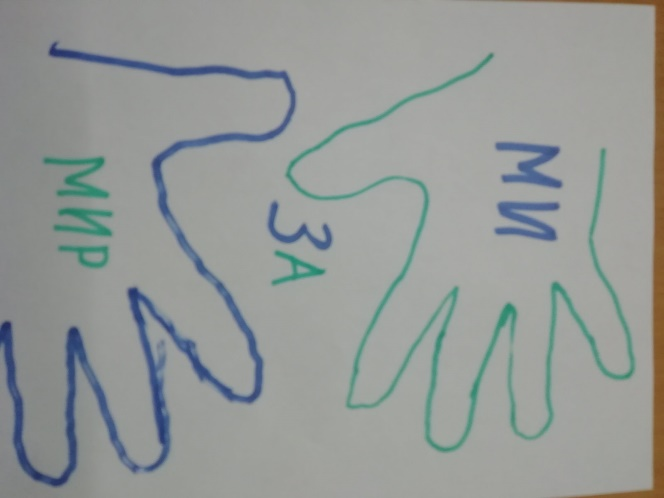 МИ
ЗА
МИР